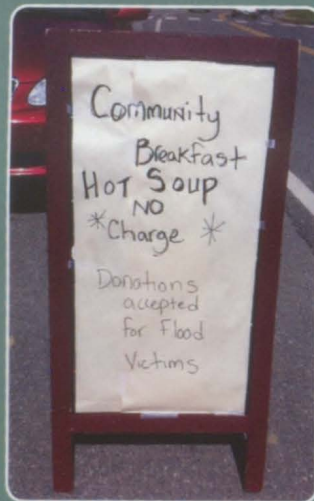 Community
Breakfast
HOT SOUP
NO
*Charge *
Donations
accepted
for Flood
Victims